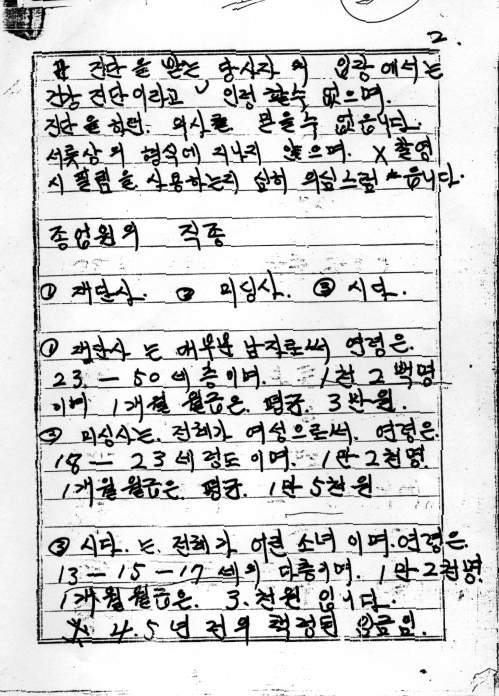 2.
진단을 받는 당사자의 입장에서는
건강진단이라고 인정 할수 없으며.
진단을 하던. 의사를 믿을수 없읍니다.
서류상의 형식에 지나지 않으며. X촬영
시 필림을 사용하는지 심히 의심스럽읍니다.
종업원의 직종
① 재단사. ② 미싱사. ③ 시다.
① 재단사는 대부분 남자로써 연령은.
23 — 50세 층이며. 1천 2백명
이며 1개월 월급은. 평균. 3만원.
② 미싱사는. 전체가 여성으로써. 연령은.
18 — 23세 정도이며. 1만 2천명.
1개월 월급은. 평균. 1만 5천원
③ 시다.는. 전체가 어린 소녀이며.연령은.
13 — 15 — 17세의 다층이며. 1만 2천명.
1개월 월급은. 3.천원 입니다.
X 4.5년 전의 책정된 임금임.